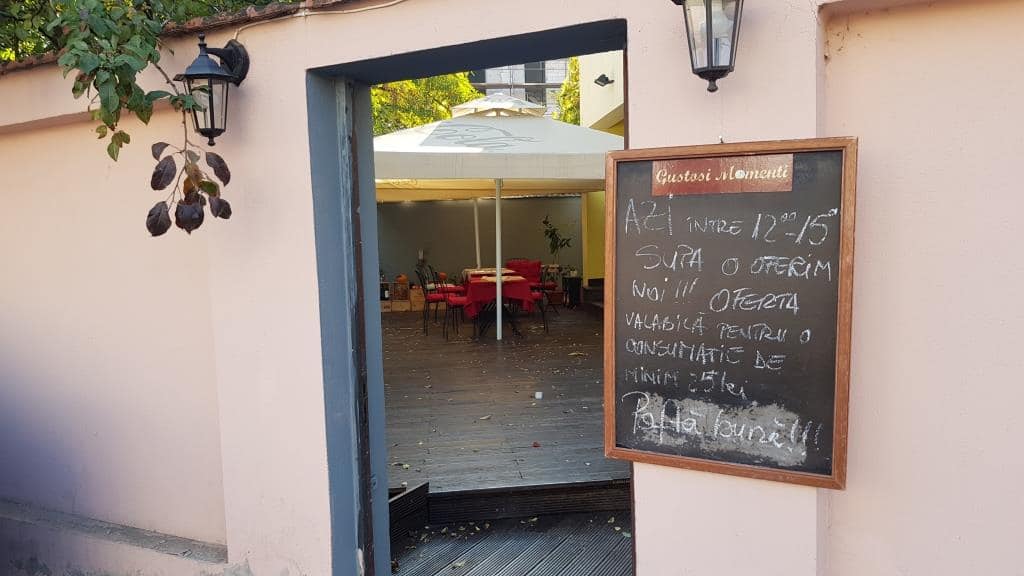 Gustosi Momenti
AZi ÎNTRE 12⁰⁰-15⁰
SUPA O OFERIM
NOI!!! OFERTA
VALABILĂ PENTRU O
CONSUMATIE DE
MINIM 25 lei
Poftă bună!!!